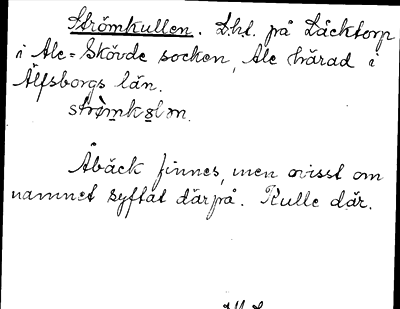 Strömkullen. Lht. på Läcktorp
i Ale-Skövde socken, Ale härad i
Älfsborgs län.

Åbäck finnes, men ovisst om
namnet syftat därpå. Kulle där.